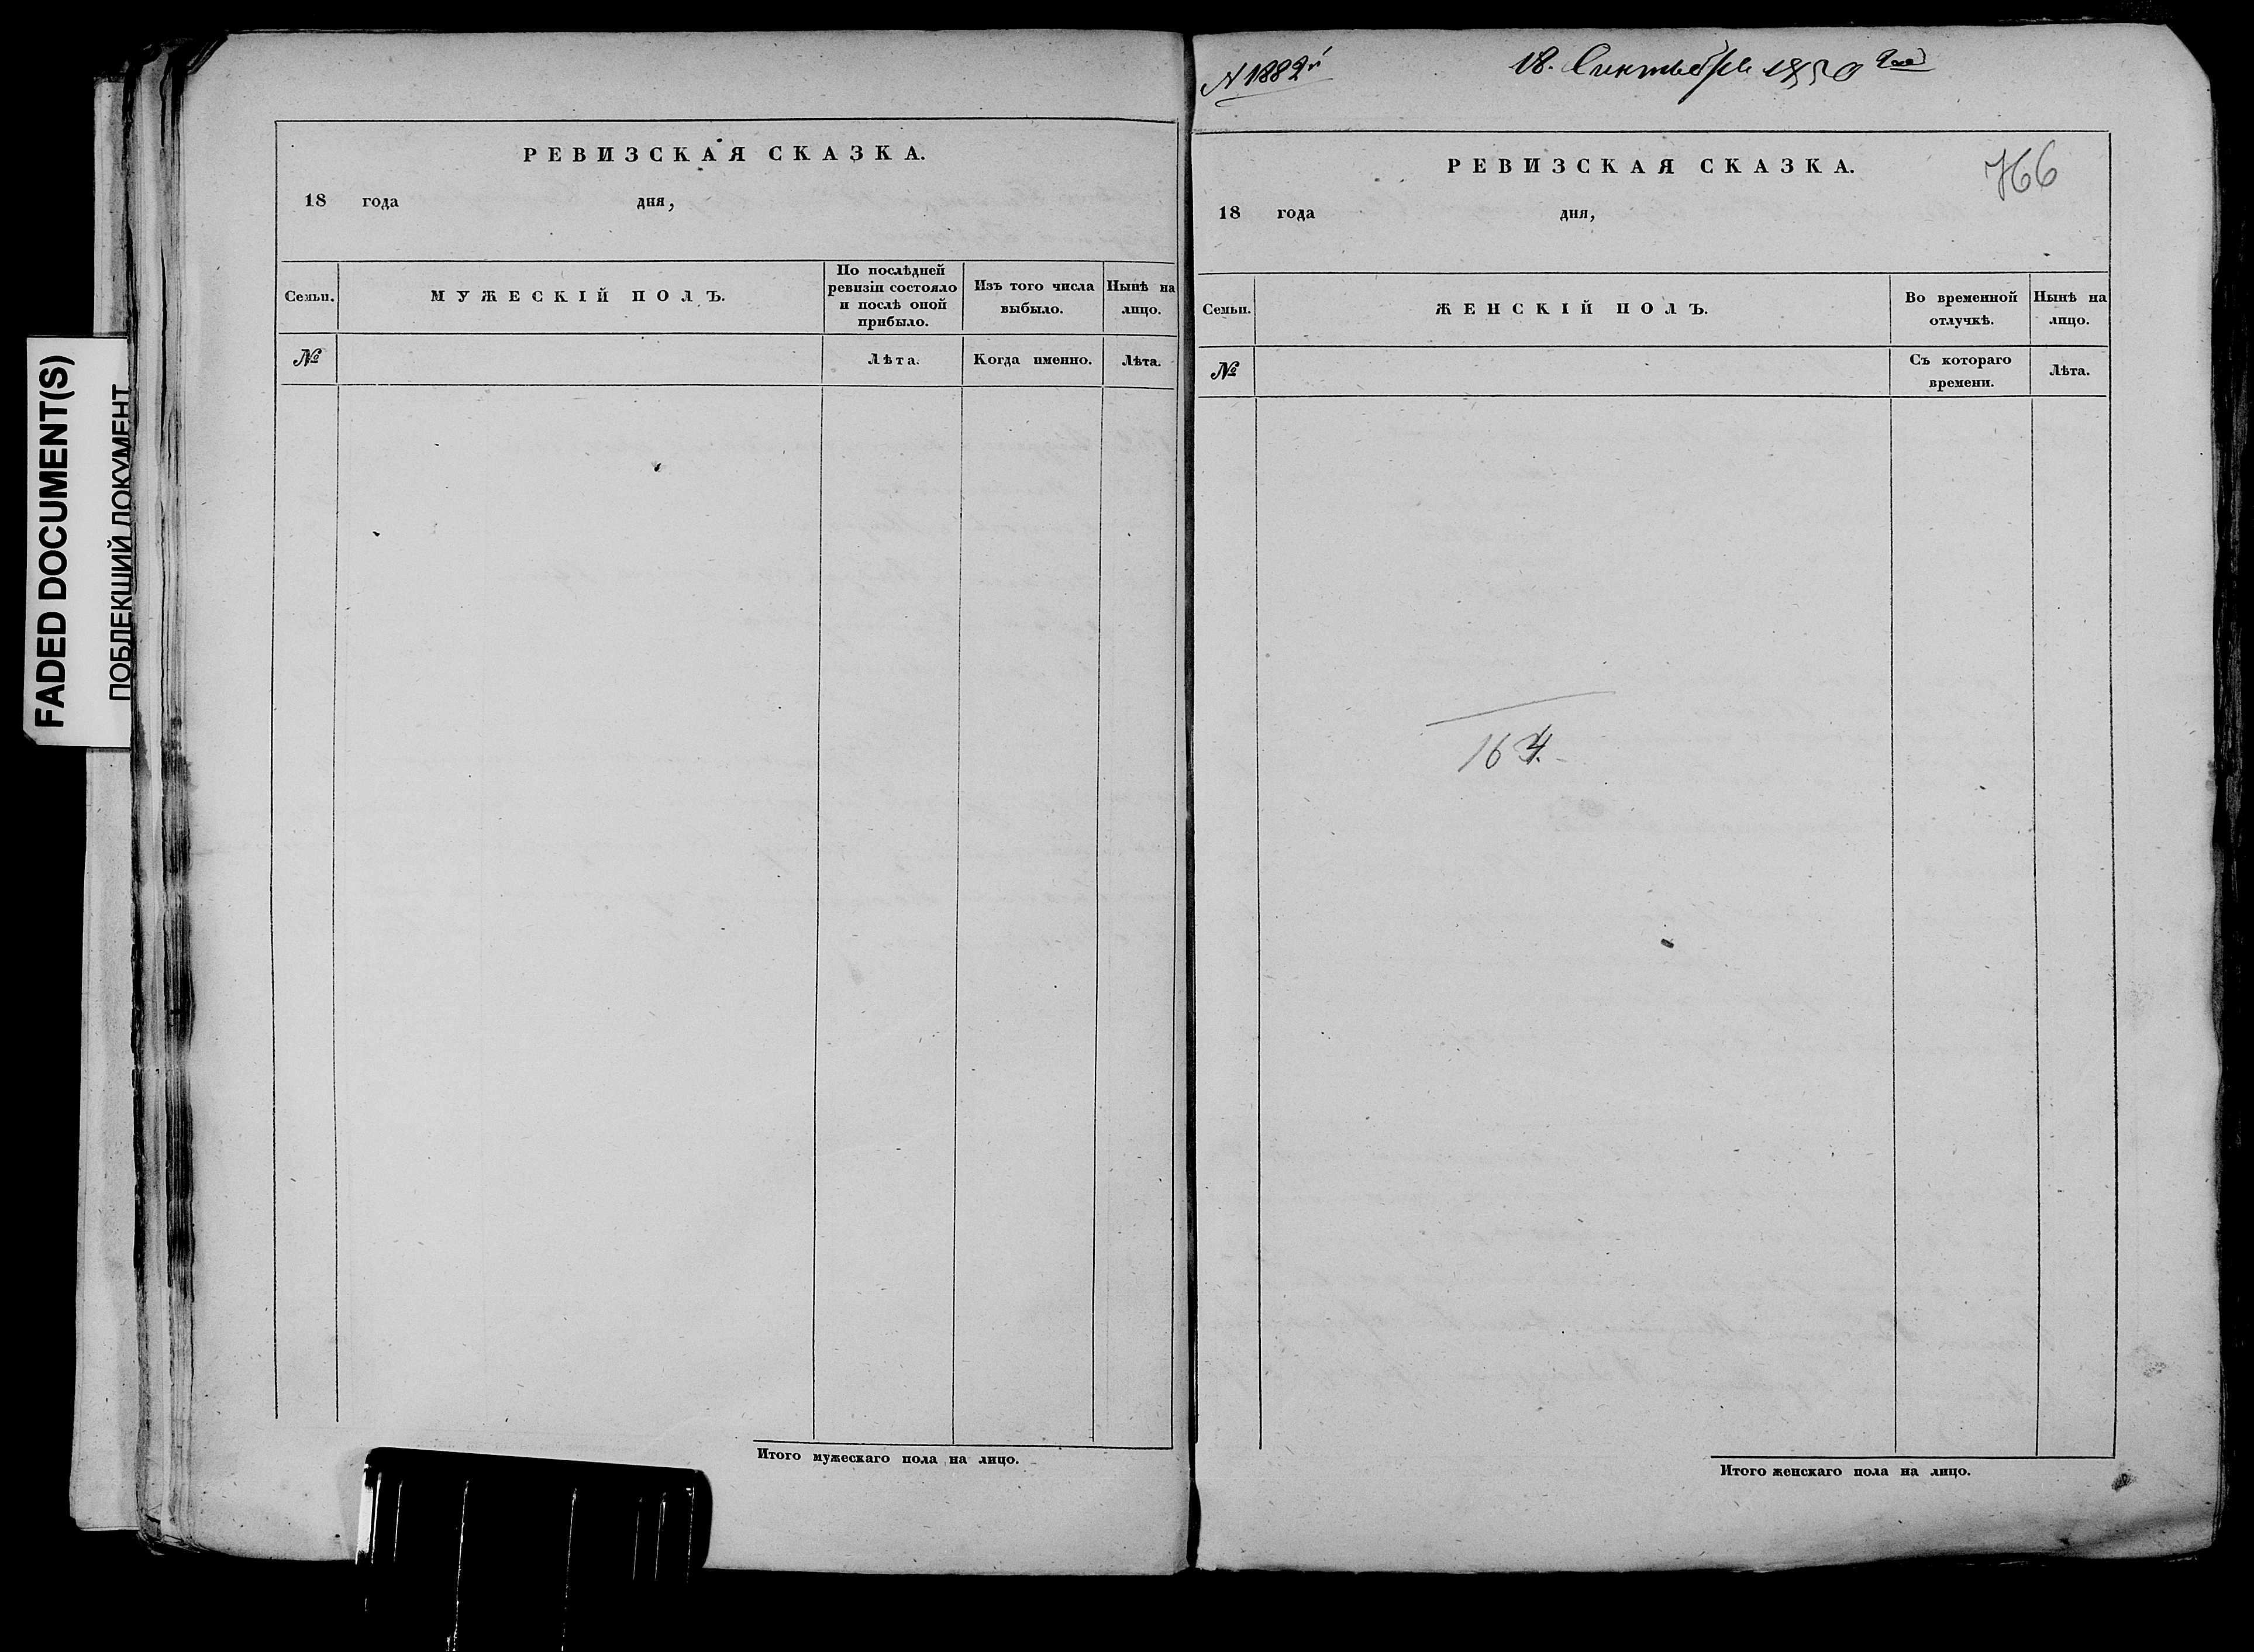 FADED DOCUMENT(S)
ПОБЛЕКШИЙ ДОКУМЕНТ
РЕВИЗСКАЯ СКАЗКА.
18 года дня,
Семьи.
МУЖЕСКІЙ ПОЛЪ.
По послѣдней
ревизіи состояло
и послѣ оной
прибыло.
Изъ того числа
выбыло.
Нынѣ на
лицо.
№
Лѣта.
Когда именно.
Лѣта.
Итого мужескаго пола на лицо.
№ 1882й
18. Сентября 1850 года
766
РЕВИЗСКАЯ СКАЗКА.
18 года дня,
Семьи.
ЖЕНСКІЙ ПОЛЪ.
Во временной
отлучкѣ.
Нынѣ на
лицо.
№
Съ котораго
времени.
Лѣта.
164.
Итого женскаго пола на лицо.